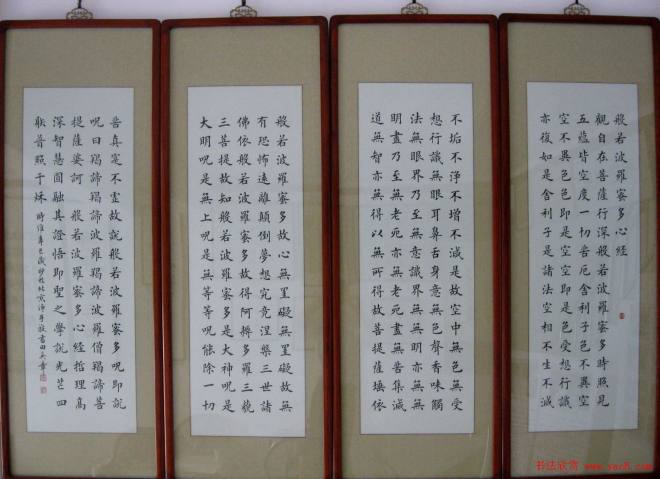 般若波羅蜜多心經
觀自在菩薩行深般若波羅蜜多時照見
五蘊皆空度一切苦厄舍利子色不異空
空不異色色即是空空即是色受想行識
亦復如是舍利子是諸法空相不生不滅
不垢不淨不增不減是故空中無色無受
想行識無眼耳鼻舌身意無色聲香味觸
法無眼界乃至無意識界無無明亦無無
明盡乃至無老死亦無老死盡無苦集滅
道無智亦無得以無所得故菩提薩埵依
般若波羅蜜多故心無罣礙無罣礙故無
有恐怖遠離顛倒夢想究竟涅槃三世諸
佛依般若波羅蜜多故得阿耨多羅三藐
三菩提故知般若波羅蜜多是大神呪是
大明呪是無上呪是無等等呪能除一切
苦真寔不虛故說般若波羅蜜多呪即說
呪曰羯諦羯諦波羅羯諦波羅僧羯諦菩
提薩婆訶 般若波羅蜜多心經哲理高
深智慧圓融其證悟即聖之學說光芒四
射普照于殊 時維 歲 於北京 田英章
书法欣赏 www.yac8.com